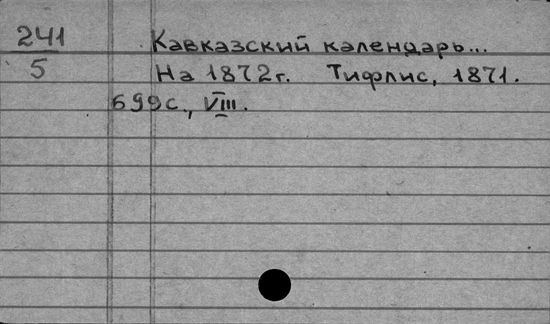 241
5
Кавказский календарь...
На 1872г. Тифлис, 1871.
699с., VIII.